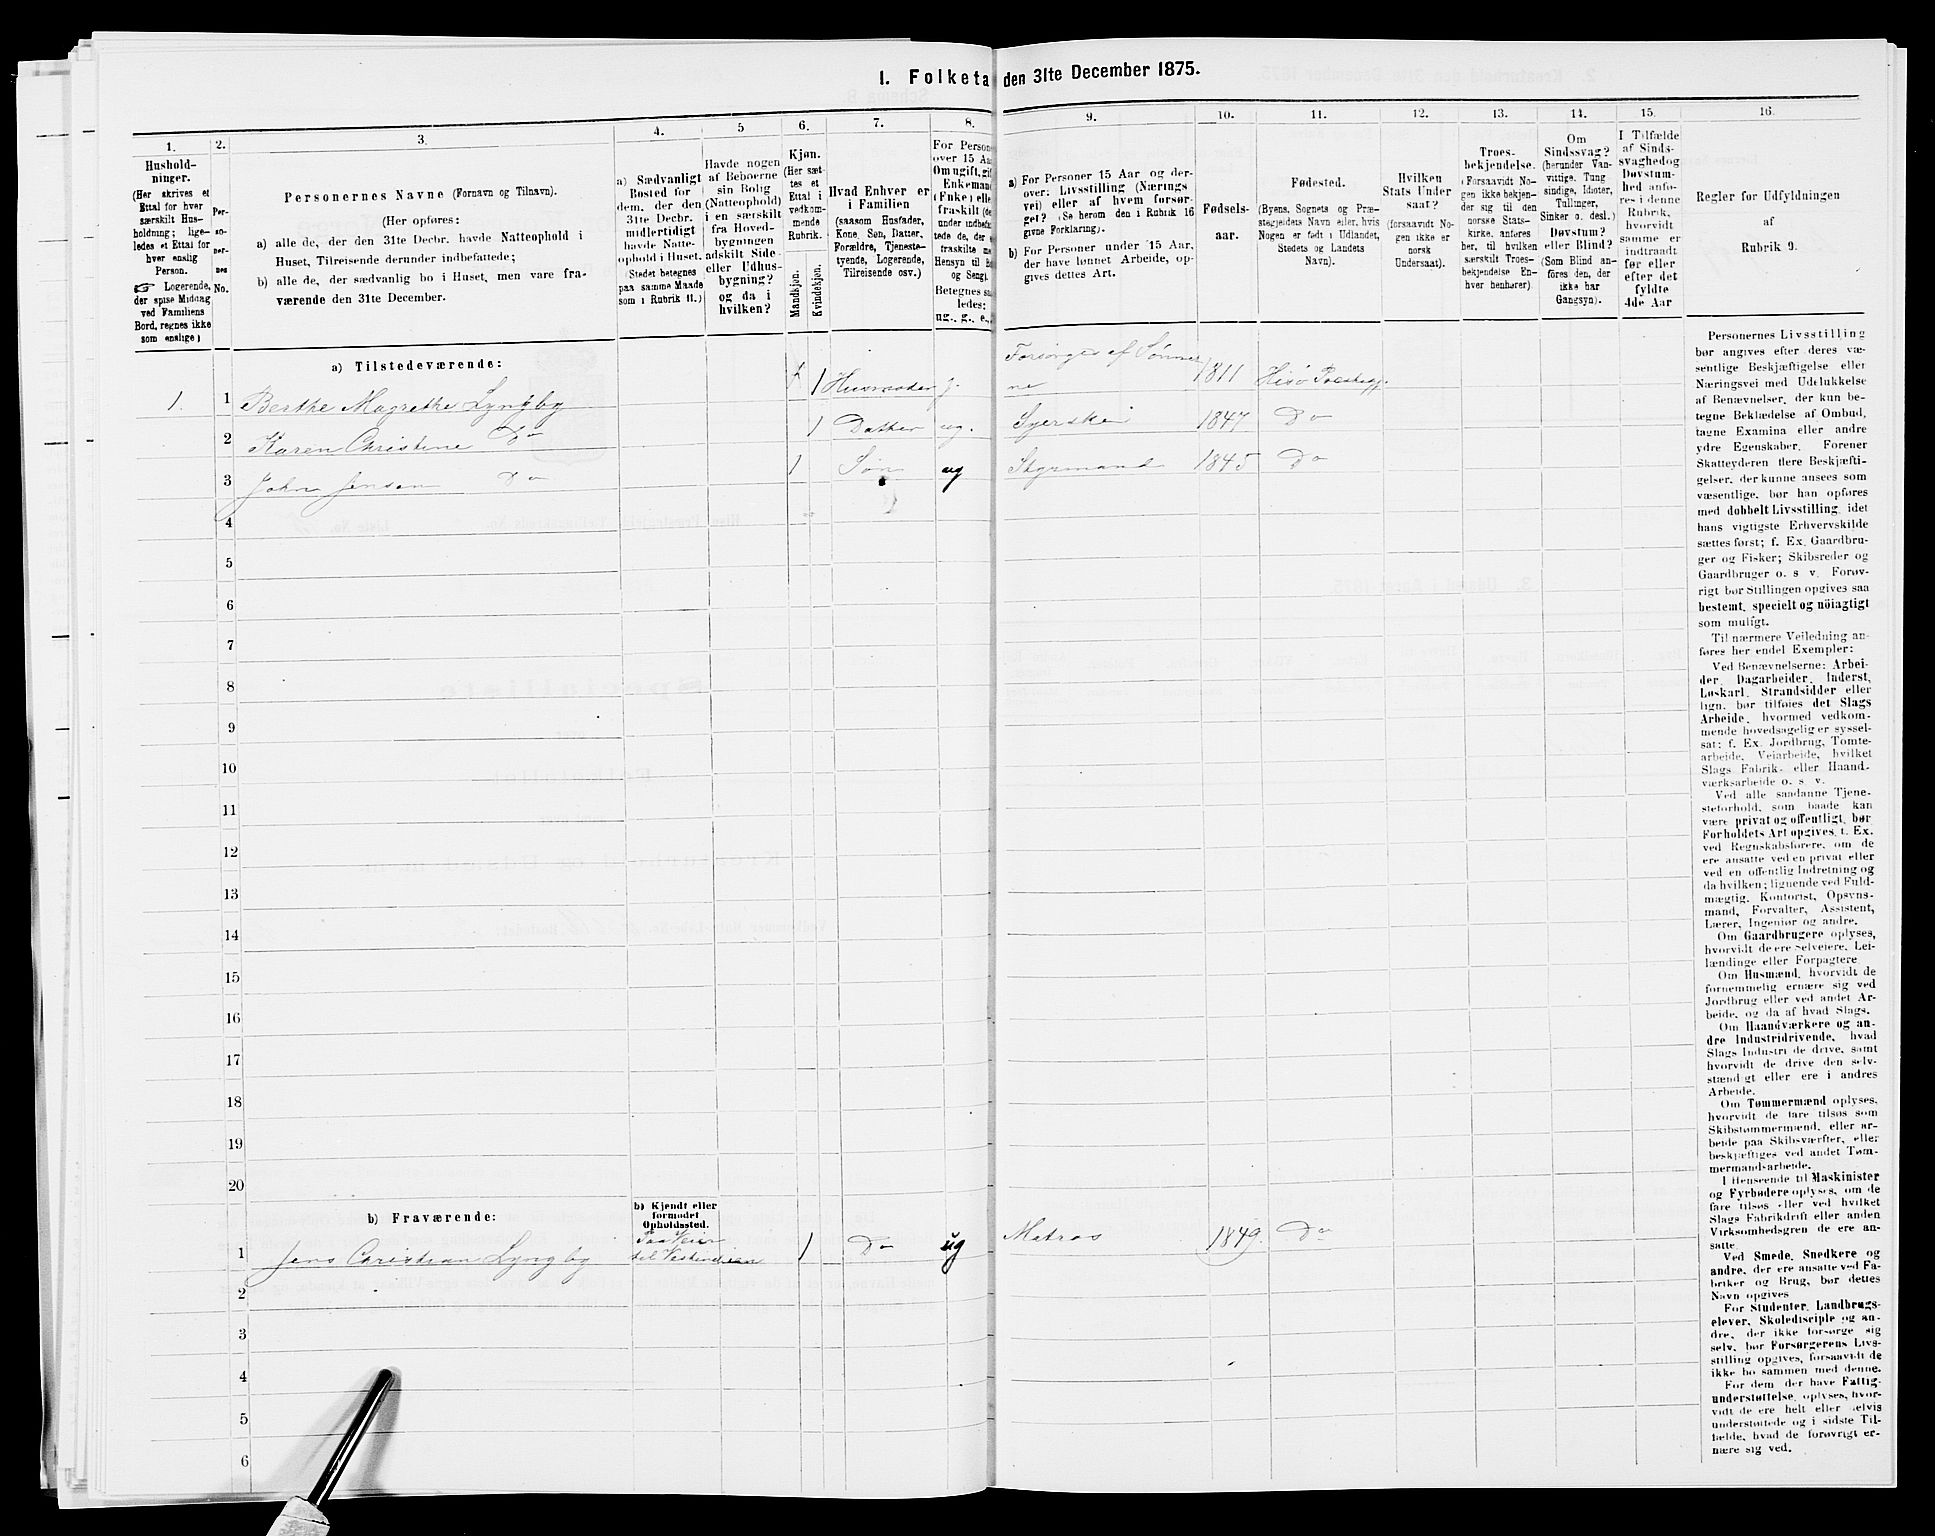 1. Folketa den 31te December 1875.
1. 2. 3. 4. 5 6. 7. 8. 9. 10. 11. 12. 13. 14. 15. 16.
Hushold-
ninger.
(Her skrives et
Ettal for hver
særskilt Hus-
holdning; lige-
ledes et Ettal for
hver enslig
Person.
☞ Logerende,
der spise Middag
ved Familiens
Bord, regnes ikke
som enslige)
Per-
so-
ner-
nes
No.
Personernes Navne (Fornavn og Tilnavn).
(Her opføres:
a) alle de, der den 31te Decbr. havde Natteophold i
Huset, Tilreisende derunder indbefattede;
b) alle de, der sædvanlig bo i Huset, men vare fra-
værende den 31te December.
a) Sædvanligt
Bosted for
dem, der den
31te Decbr.
midlertidigt
havde Natte-
ophold i Huset.
(Stedet betegnes
paa samme Maade
som i Rubrik 11.)
Havde nogen
af Beboerne
sin Bolig
(Natteophold)
i en særskilt
fra Hoved-
bygningen
adskilt Side-
eller Udhus-
bygning?
og da i
hvilken?
Kjøn.
(Her sæt-
tes et
Ettal i
vedkom-
mende
Rubrik.
Mandkjøn.
Kvindekjøn.
Hvad Enhver er
i Familien
(saasom Husfader,
Kone, Søn, Datter,
Forældre, Tjeneste-
tyende, Logerende,
Tilreisende osv.)
For Person
over 15 Aa
Om ugift, gif
Enkemand
(Enke) elle
fraskilt (de
under indbefat-
tede de, der e
fraskilte m
Hensyn til B
og Seng).
Betegnes sa
ledes:
ug., g., e.,
a) For Personer 15 Aar og der-
over: Livsstilling (Nærings-
vei) eller af hvem forsør-
get? (Se herom den i Rubrik 16
givne Forklaring).
b) For Personer under 15 Aar,
der have lønnet Arbeide, op-
gives dettes Art.
Fødsels-
aar.
Fødested.
(Byens, Sognets og Præ-
stegjeldets Navn eller, hvis
Nogen er født i Udlandet,
Stedets og Landets
Navn).
Hvilken
Stats Under
saat?
(forsaavidt No-
gen ikke er
norsk
Undersaat).
Troes-
bekjendelse.
(Forsaavidt No-
gen ikke bekjen-
der sig til den
norske Stats-
kirke, anføres
her, til hvilken
særskilt Troes-
bekjendelse En-
hver henhører).
Om
Sindssvag?
(herunder Van-
vittige, Tung-
sindige, Idioter,
Tullinger,
Sinker o. desl.)
Døvstum?
eller Blind?
(Som Blind an-
føres den, der
ikke har
Gangsyn).
I Tilfælde
af Sinds-
svaghed og
Døvstum-
hed anfø-
res i denne
Rubrik,
hvorvidt
samme er
indtraadt
før eller
efter det
fyldte
4de Aar
Regler for Udfyldningen
af
Rubrik 9.
a) Tilstedeværende:
1. 1 Berthe Magrethe Lyngby 1 Husmoder Forsørges af Sønner-
ne 1811 Hisø Præstegj.
2 Karen Christine Do 1 Datter ug. Syerske 1847 Do
3 John Jensen Do 1 Søn ug Styrmand 1845 Do
4
5
6
7
8
9
10
11
12
13
14
15
16
17
18
19
20
b) Fraværende:
b) Kjendt eller
formodet
Opholdssted.
1 Jens Christian Lyngby Paa Reise
til Vestindien 1 Do ug Matros 1849. Do
2
3
4
5
6
Personernes Livsstilling
bør angives efter deres væ-
sentlige Beskjæftigelse eller
Næringsvei med Udelukkelse
af Benævnelser, der kun be-
tegne Beklædelse af Ombud,
tagne Examina eller andre
ydre Egenskaber. Forener
Skatteyderen flere Beskjæfti-
gelser, der kunne ansees som
væsentlige, bør han opføres
med dobbelt Livsstilling, idet
hans vigtigste Erhvervskilde
sættes først; f. Ex. Gaardbru-
ger og Fisker; Skibsreder og
Gaardbruger o. s v. Forøv-
rigt bør Stillingen opgives saa
bestemt, specielt og nöiagtigt
som muligt.
Til nærmere Veiledning an-
føres her endel Exempler:
Ved Benævnelserne: Arbei-
der, Dagarbeider, Inderst,
Løskarl, Strandsidder eller
lign. bør tilføies det Slags
Arbeide, hvormed vedkom-
mende hovedsagelig er syssel-
sat; f. Ex. Jordbrug, Tomte-
arbeide, Veiarbeide, hvilket
Slags Fabrik- eller Haand-
værksarbeide o. s. v.
Ved alle saadanne Tjene-
steforhold, som baade kan
være privat og offentligt, bør
Forholdets Art opgives, t. Ex.
ved Regnskabsførere, om de
ere ansatte ved en privat eller
ved en offentlig Indretning og
da hvilken; lignende ved Fuld-
mægtig, Kontorist, Opsyns-
mand, Forvalter, Assistent,
Lærer, Ingeniør og andre.
Om Gaardbrugere oplyses,
hvorvidt de ere Selveiere, Lei-
lændinge eller Forpagtere.
Om Husmænd, hvorvidt de
fornemmelig ernære sig ved
Jordbrug eller ved andet Ar-
beide, og da af hvad Slags.
Om Haandværkere og an-
dre Industridrivende, hvad
Slags Industri de drive, samt
hvorvidt de drive den selv-
stændigt eller ere i andres
Arbeide.
Om Tømmermænd oplyses,
hvorvidt de fare tilsøs som
Skibstømmermænd, eller ar-
beide paa Skibsværfter, eller
beskjæftiges ved andet Tøm-
mermandsarbeide.
I Henseende til Maskinister
og Fyrbødere oplyses, om de
fare tilsøs eller ved hvilket
Slags Fabrikdrift eller anden
Virksomhedsgren de ere an-
satte.
Ved Smede, Snedkere og
andre, der ere ansatte ved Fa-
briker og Brug, bør dettes
Navn opgives
For Studenter, Landbrugs-
elever, Skoledisciple og an-
dre, der ikke forsørge sig
selv, bør Forsørgerens Livs-
stilling opgives, forsaavidt de
ikke bo sammen med denne.
For dem, der have Fattig-
understøttelse, oplyses, hvor-
vidt de ere helt eller delvis
understøttede og i sidste Til-
fælde, hvad de forøvrigt er-
nære sig ved.